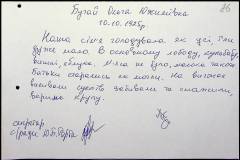 86
Бугай Ольга Юхимівна
10.10.1925р.
Наша сім'я голодувала як усі, їли
дуже мало. В основному лободу, кульбабу
вишні, яблука. М'яса не було, молока також
батьки старались як могли. На вигонах
виливали сусліків забивали та смажили,
варили крупу.
секретар
с/ради